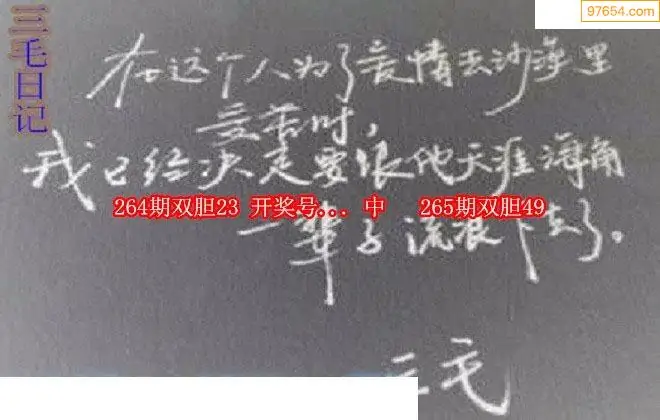 97654.com
三毛日记
在这个人为了爱情去沙漠里
受苦时，
我已经决定要跟他天涯海角
264期双胆23 开奖号... 中 265期双胆49
一辈子流浪下去了。
三毛